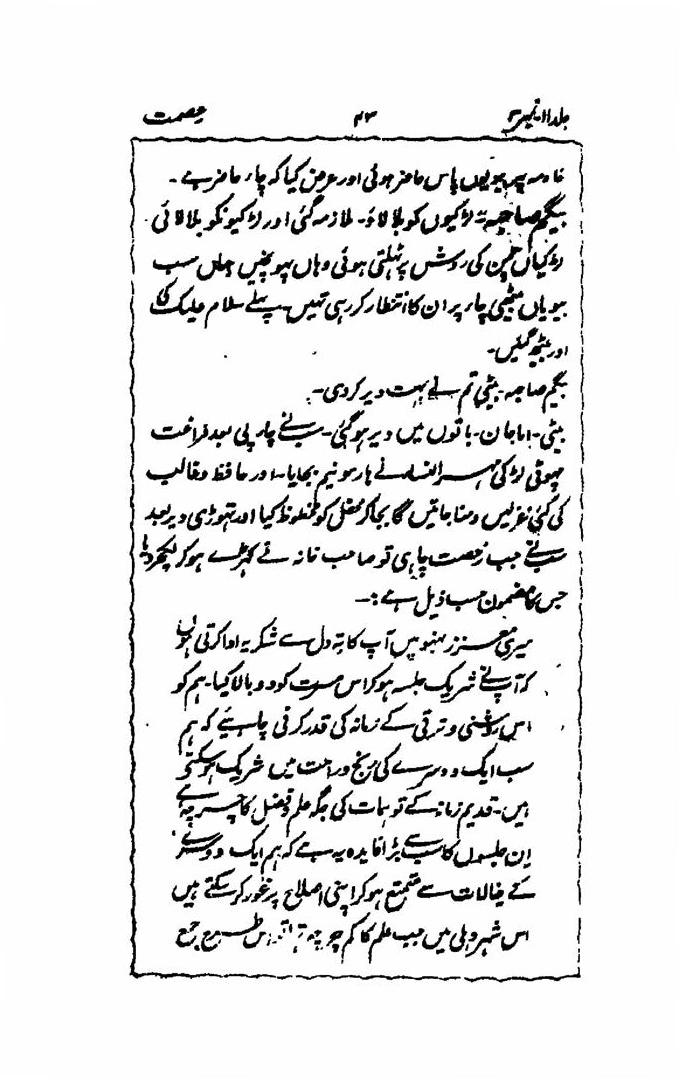 جلد ۱۱۔ نمبر ۴ ۴۳ عصمت
خادمہ پھر بیویوں پاس حاضر ہوئی اور عرض کیا کہ چاء حاضر ہے۔
بیگم صاحبہ۔ لڑکیوں کو بلا لاؤ۔ ملازمہ گئی اور لڑکیونکو بلا لائی
لڑکیاں چمن کی روش پر ٹہلتی ہوئی وہاں پہونچیں جہاں سب
بیویاں بیٹھی چاء پر ان کا انتظار کر رہی تہیں۔ پہلے سلام علیک کی
اور بیٹھ گئیں۔
بیگم صاحبہ۔ بیٹی تم نے بہت دیر کر دی۔
بیٹی۔ اماجان۔ باتوں میں دیر ہو گئی۔ سب نے چاء پی بعد فراغت
چھوٹی لڑکی مہر النساء نے ہارمونیم بجایا۔ اور حافظ و غالب
کی کئی غزلیں و مناجاتیں گا بجا کر محفل کو محظوظ کیا اور تہوڑی دیر بعد
سب نے جب رخصت چاہی تو صاحب خانہ نے کہڑے ہو کر لکچر دیا
جس کا مضمون حسب ذیل ہے:۔
میری معزز بہنو میں آپ کا تہ دل سے شکریہ ادا کرتی ہوں
کہ آپ نے شریک جلسہ ہو کر اس مسرت کو دوبالا کیا۔ ہم کو
اس روشنی و ترقی کے زمانہ کی قدر کرنی چاہئیے کہ ہم
سب ایک دوسرے کی رنج و راحت میں شریک ہو سکتی
ہیں۔ قدیم زمانہ کے توہمات کی جگہ علم و فضل کا چرچہ ہے
اِن جلسوں کا سب سے بڑا فایدہ یہ ہے کہ ہم ایک دوسرے
کے خیالات سے متمتع ہو کر اپنی اصلاح پر غور کر سکتے ہیں
اس شہر دہلی میں جب علم کا کم چرچہ تہا تو اس طرح جمع